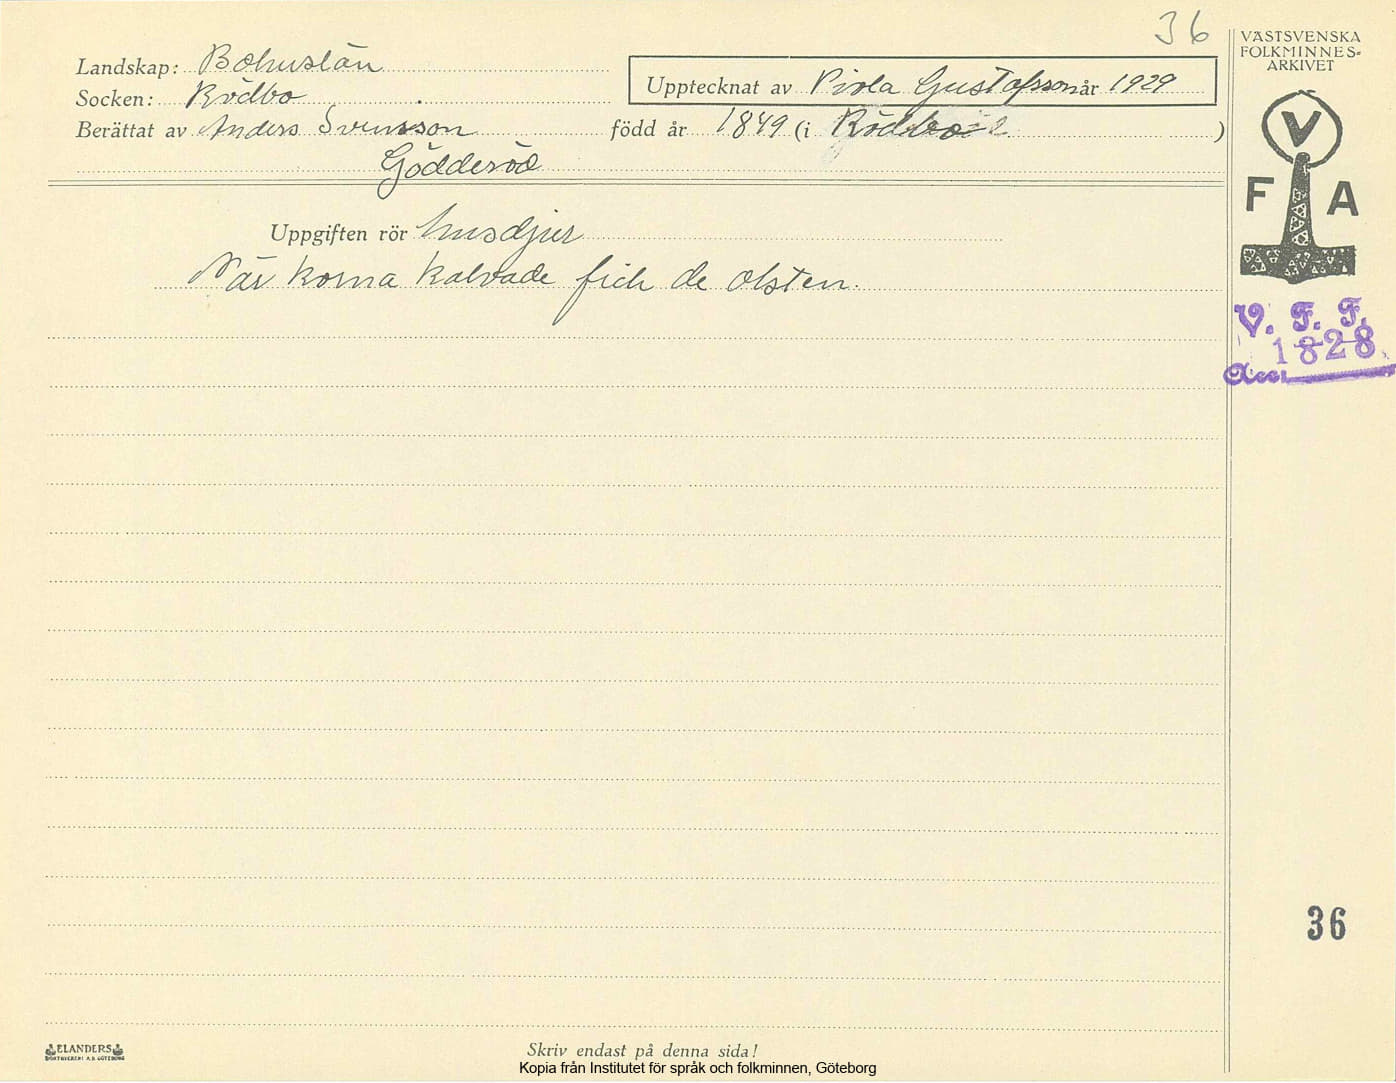 36
VÄSTSVENSKA
FOLKMINNES-
ARKIVET
Landskap: Bohuslän
Socken: Rödbo
Upptecknat av Viola Gustafsson år 1929
Berättat av Anders Svensson född år 1849 (i Rödbo )
Gödderöd
V
F A
Uppgiften rör husdjur
När korna kalvade fich de olsten.
V. F. F.
1828
Acc.
36
ELANDERS
BOKTRYCKERI A.B. GÖTEBORG
Skriv endast på denna sida!
Kopia från Institutet för språk och folkminnen, Göteborg